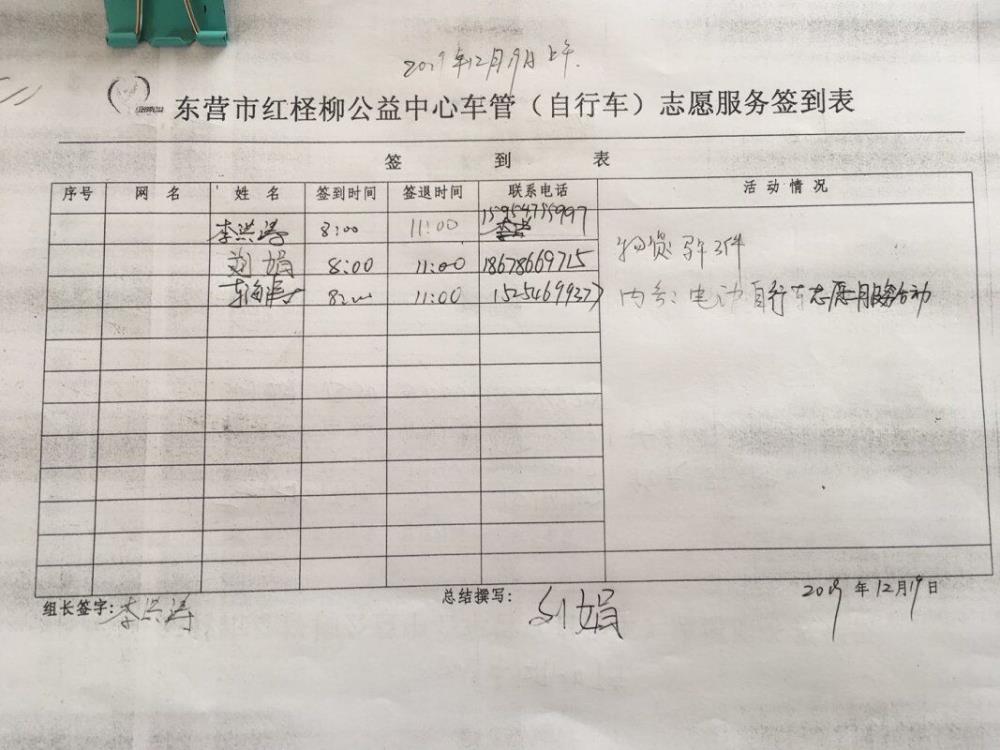 2019年12月19日上午.
东营市红柽柳公益中心车管（自行车）志愿服务签到表
签 到 表
序号 网 名 姓 名 签到时间 签退时间 联系电话 活动情况
李洪涛 8:00 11:00 15954755997
刘娟 8:00 11:00 18678669715
11:00 15254699377
物资
电动自行车志愿服务活动
组长签字: 李洪涛 总结撰写: 刘娟 2019年12月19日